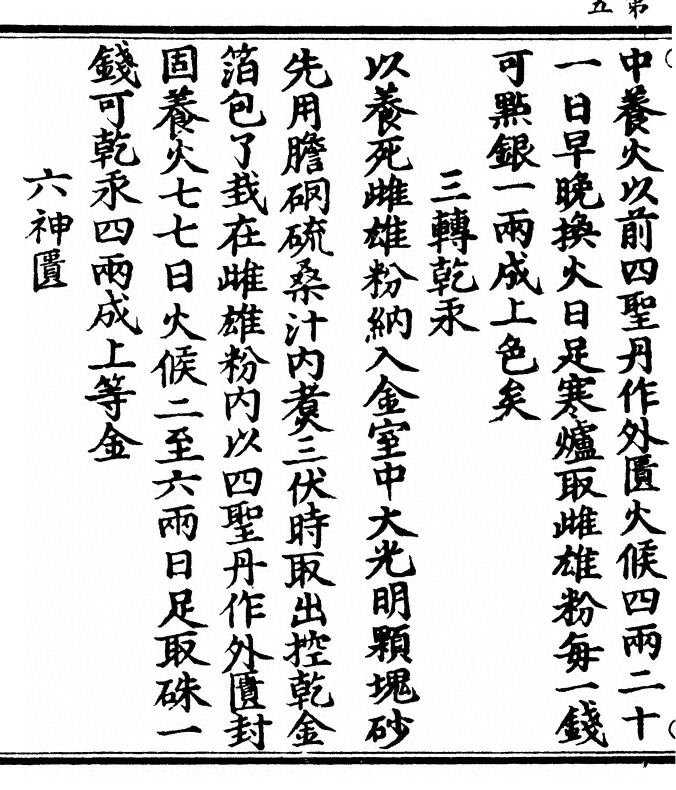 第
五
中養火以前四聖丹作外匱火候四兩二十
一日早晚換火日足寒爐取雌雄粉每一錢
可點銀一兩成上色矣
三轉乾汞
以養死雌雄粉納入金室中大光明顆塊砂
先用膽硇硫桑汁內煑三伏時取出控乾金
箔包了栽在雌雄粉內以四聖丹作外匱封
固養火七七日火候二至六兩日足取硃一
錢可乾汞四兩成上等金
六神匱